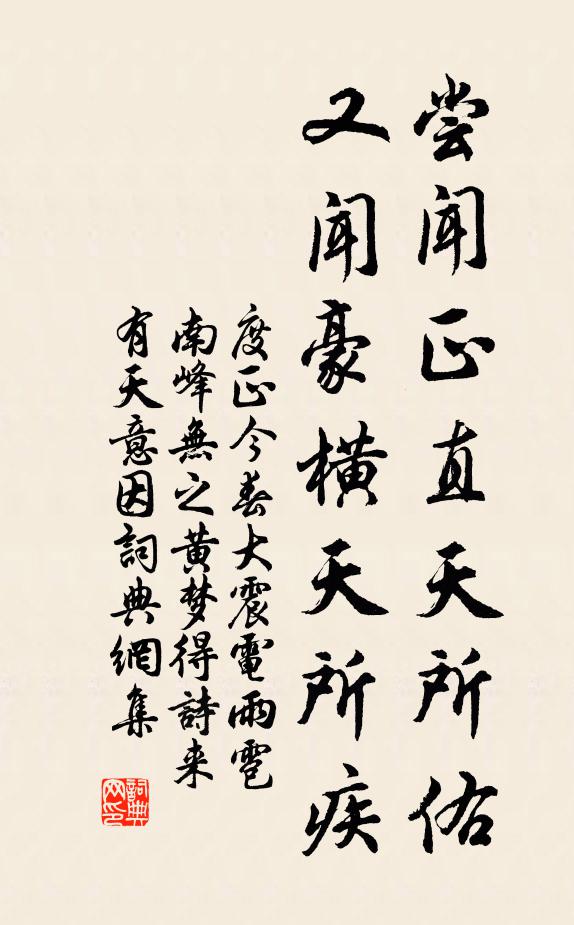 尝闻正直天所佑
又闻豪横天所疾
度正今春大震電雨雹
南峰無之黄梦得詩来
有天意因詞典網集
詞典網印